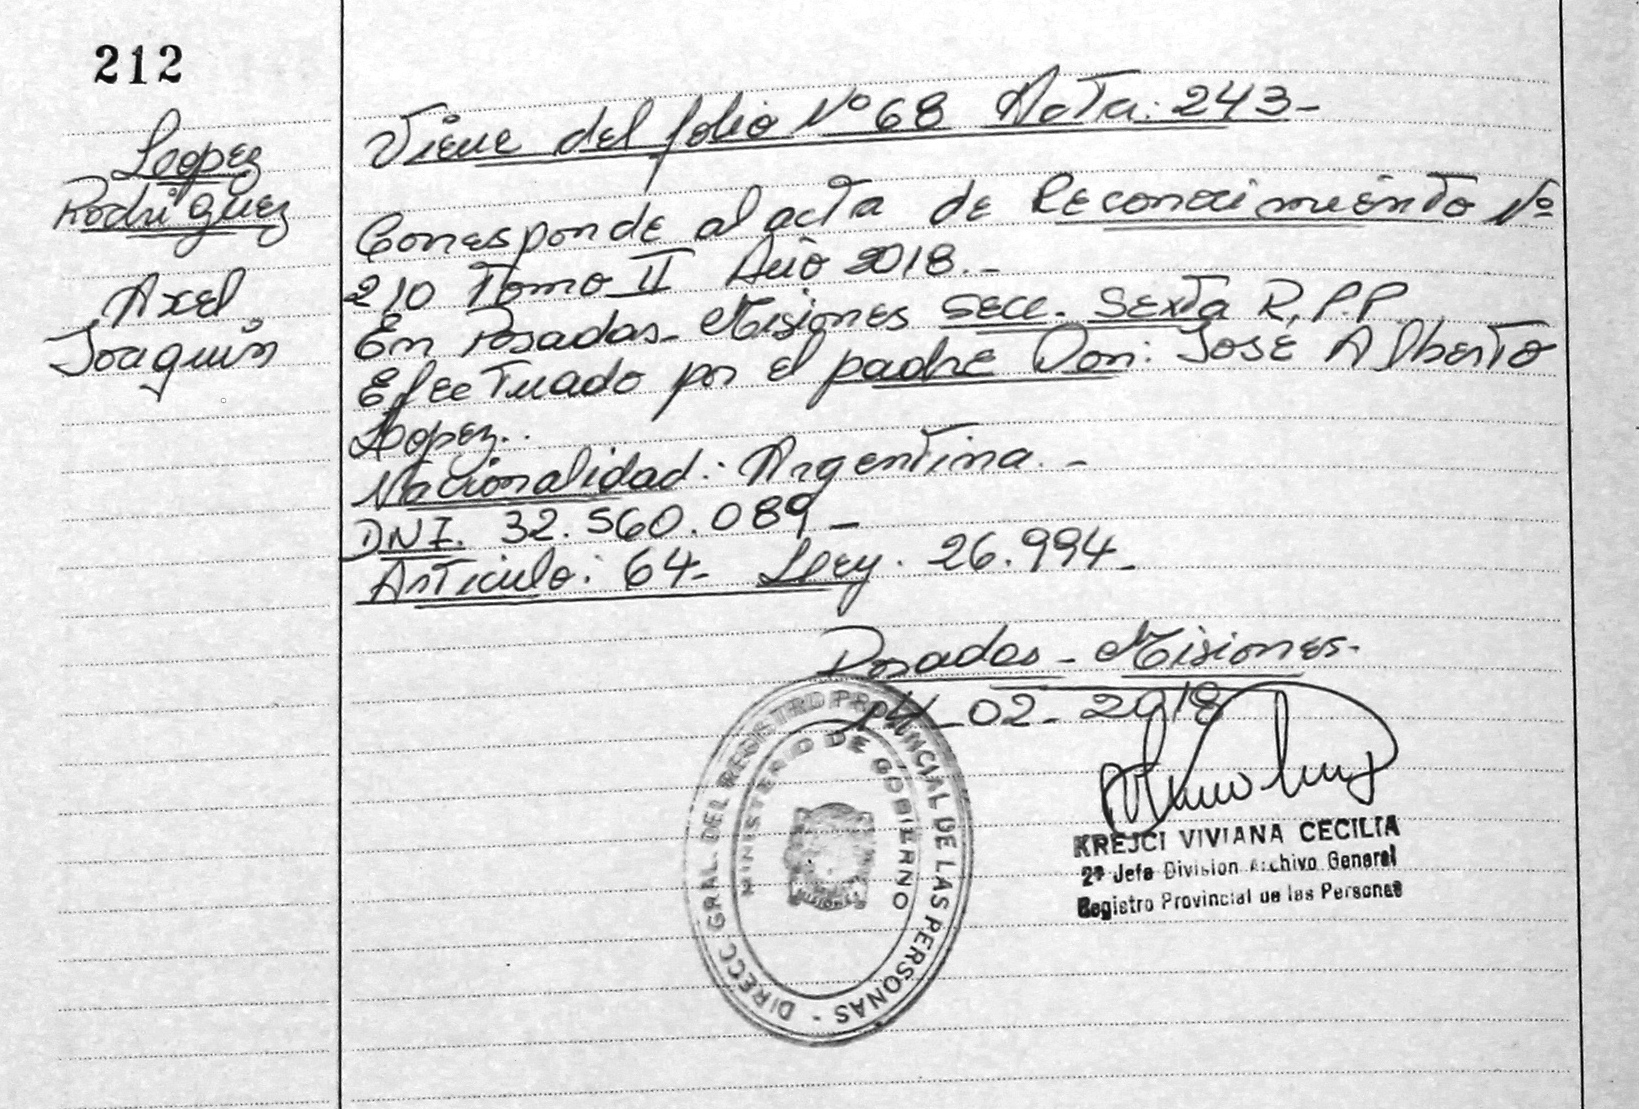 212
Lopez
Rodriguez
Axel
Joaquin
Viene del folio Nº 68 Acta: 243-
Corresponde al acta de Reconocimiento Nº
210 Tomo II Año 2018.-
En Posadas- Misiones Secc. Sexta R.P.P.
Efectuado por el padre Don: José Alberto
Lopez..
Nacionalidad: Argentina.-
DNI. 32.560.089-
Articulo: 64- Ley. 26.994-
Posadas- Misiones-
14-02-2018
KREJCI VIVIANA CECILIA
2ª Jefa Division Archivo General
Registro Provincial de las Personas
DIRECC. GRAL. DEL REGISTRO PROVINCIAL DE LAS PERSONAS -
MINISTERIO DE GOBIERNO
MISIONES